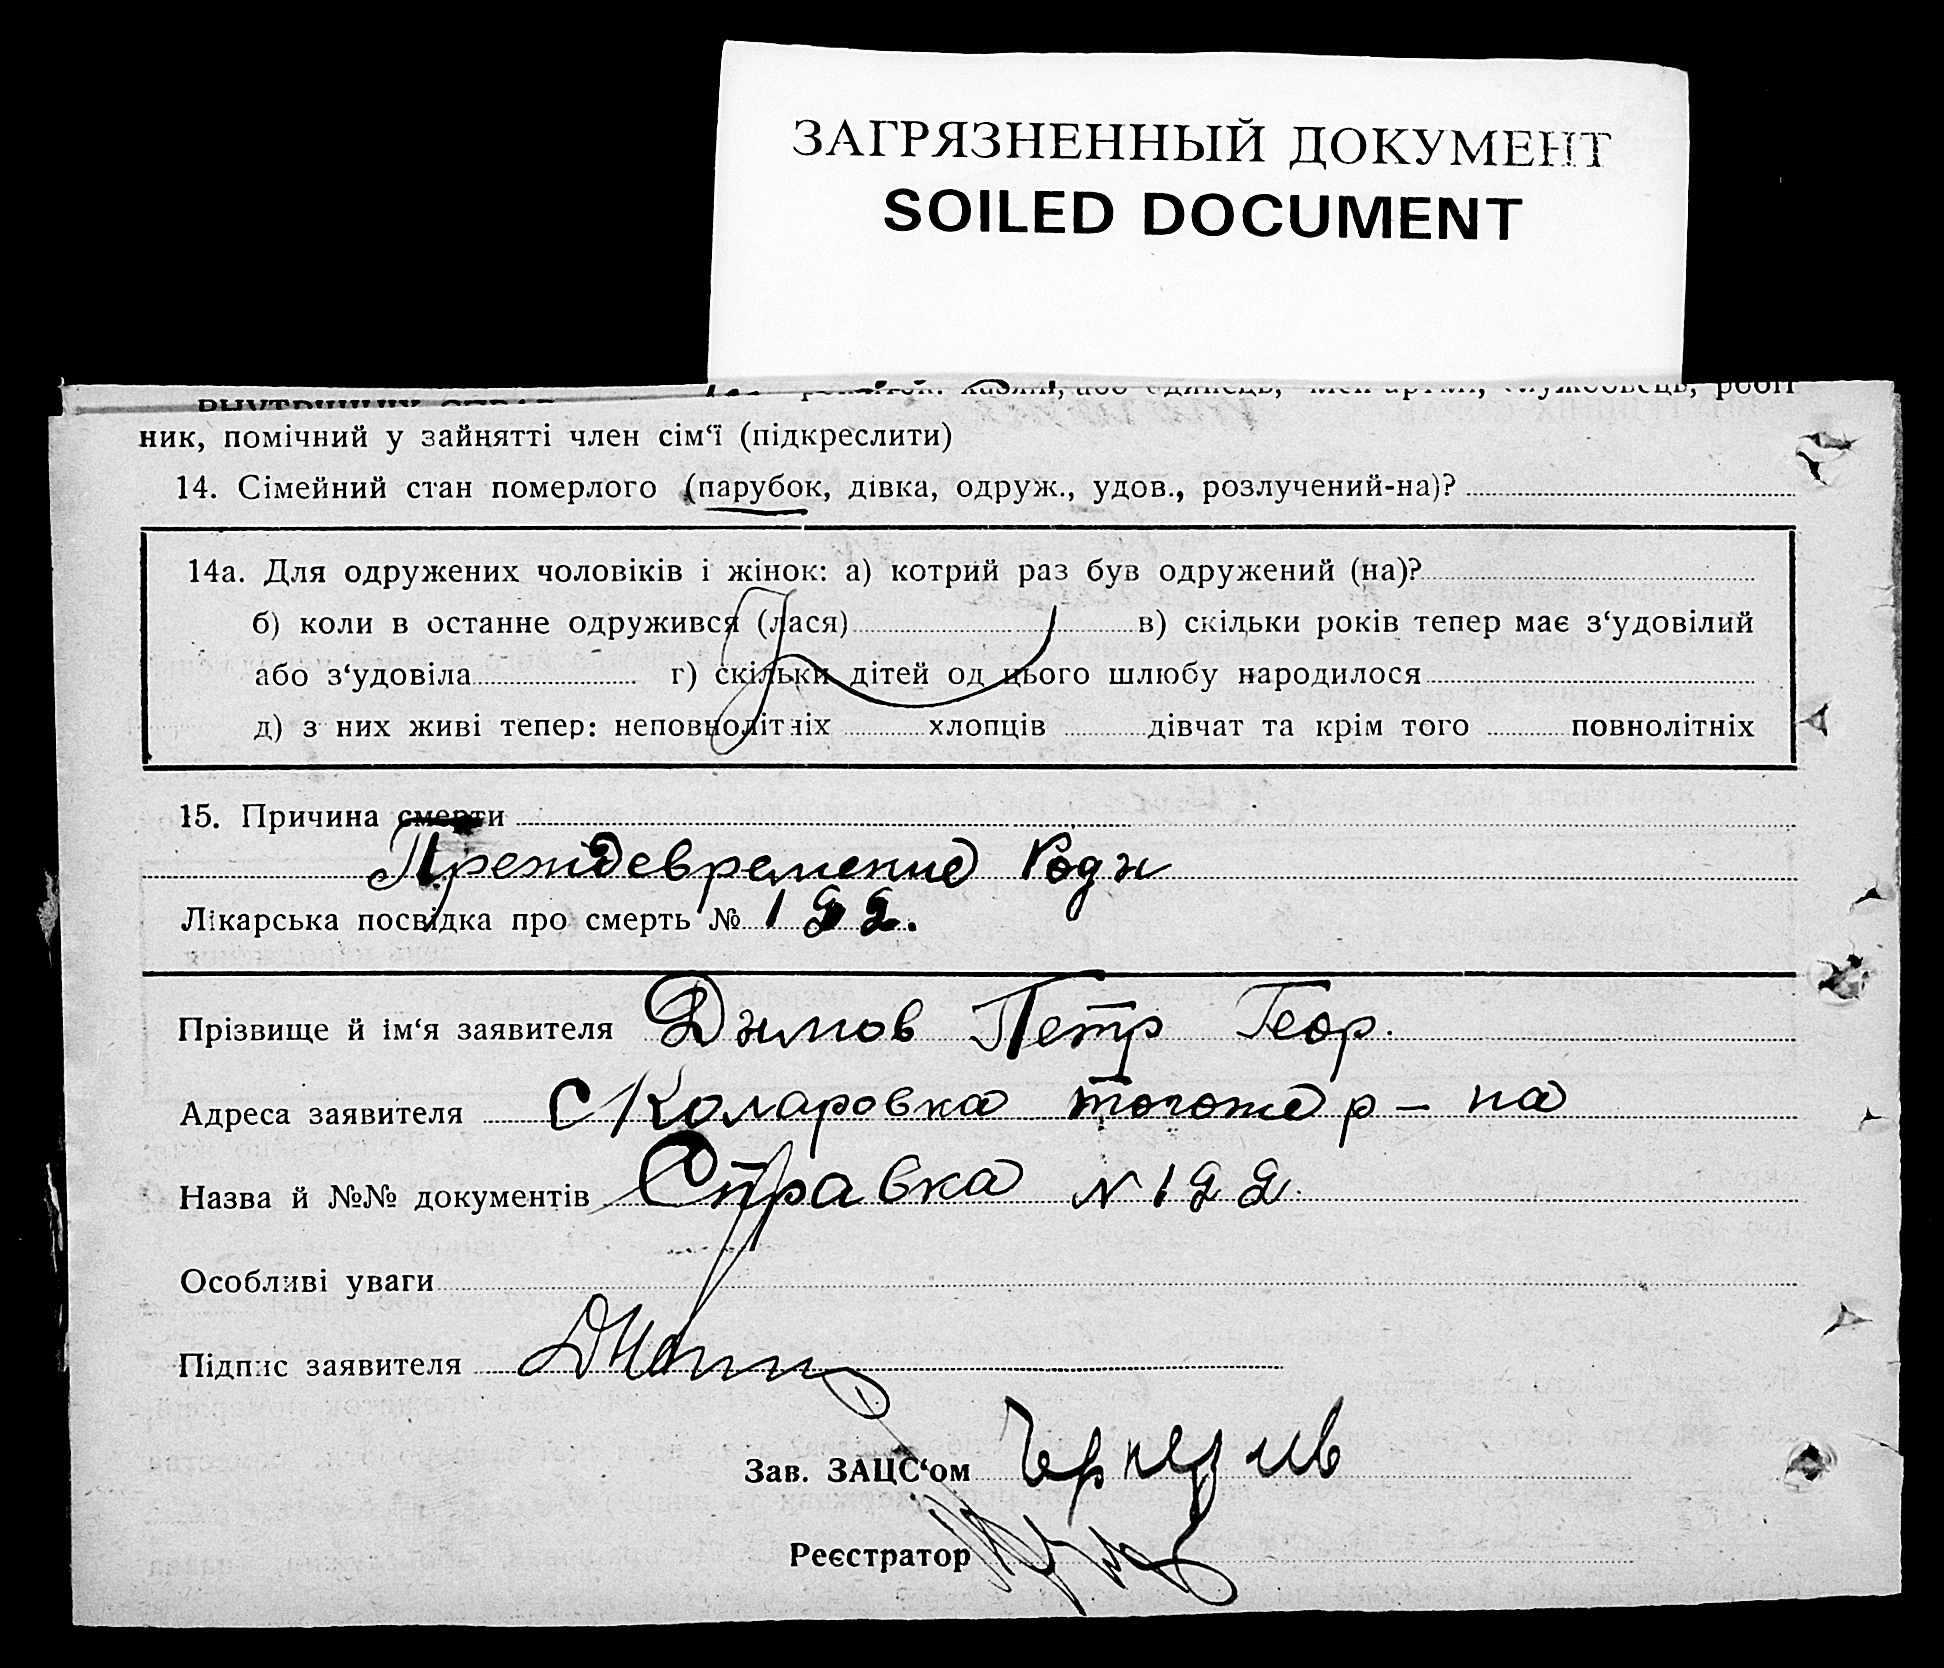 ЗАГРЯЗНЕННЫЙ ДОКУМЕНТ
SOILED DOCUMENT
ник, помічний у зайнятті член сім‘ї (підкреслити)
14. Сімейний стан померлого (парубок, дівка, одруж., удов., розлучений-на)?
14а. Для одружених чоловіків і жінок: а) котрий раз був одружений (на)?
б) коли в останнє одружився (лася) в) скільки років тепер має з‘удовілий
або з‘удовіла г) скільки дітей од цього шлюбу народилося
д) з них живі тепер: неповнолітніх хлопців дівчат та крім того повнолітніх
15. Причина смерти
Преждевремение Роды
Лікарська посвідка про смерть № 122.
Прізвище й ім‘я заявителя Дымов Петр Геор.
Адреса заявителя с Коларовка тогоже р-на
Назва й №№ документів Справка N 122.
Особливі уваги
Підпис заявителя
Зав. ЗАЦС‘ом
Реєстратор